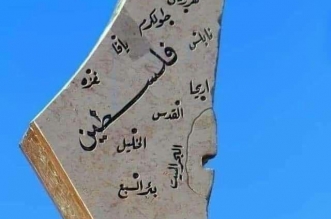 طولكرم
نابلس
يافا
فلسطين
غزة
اريحا
القدس
الخليل
البحر الميت
بئر السبع